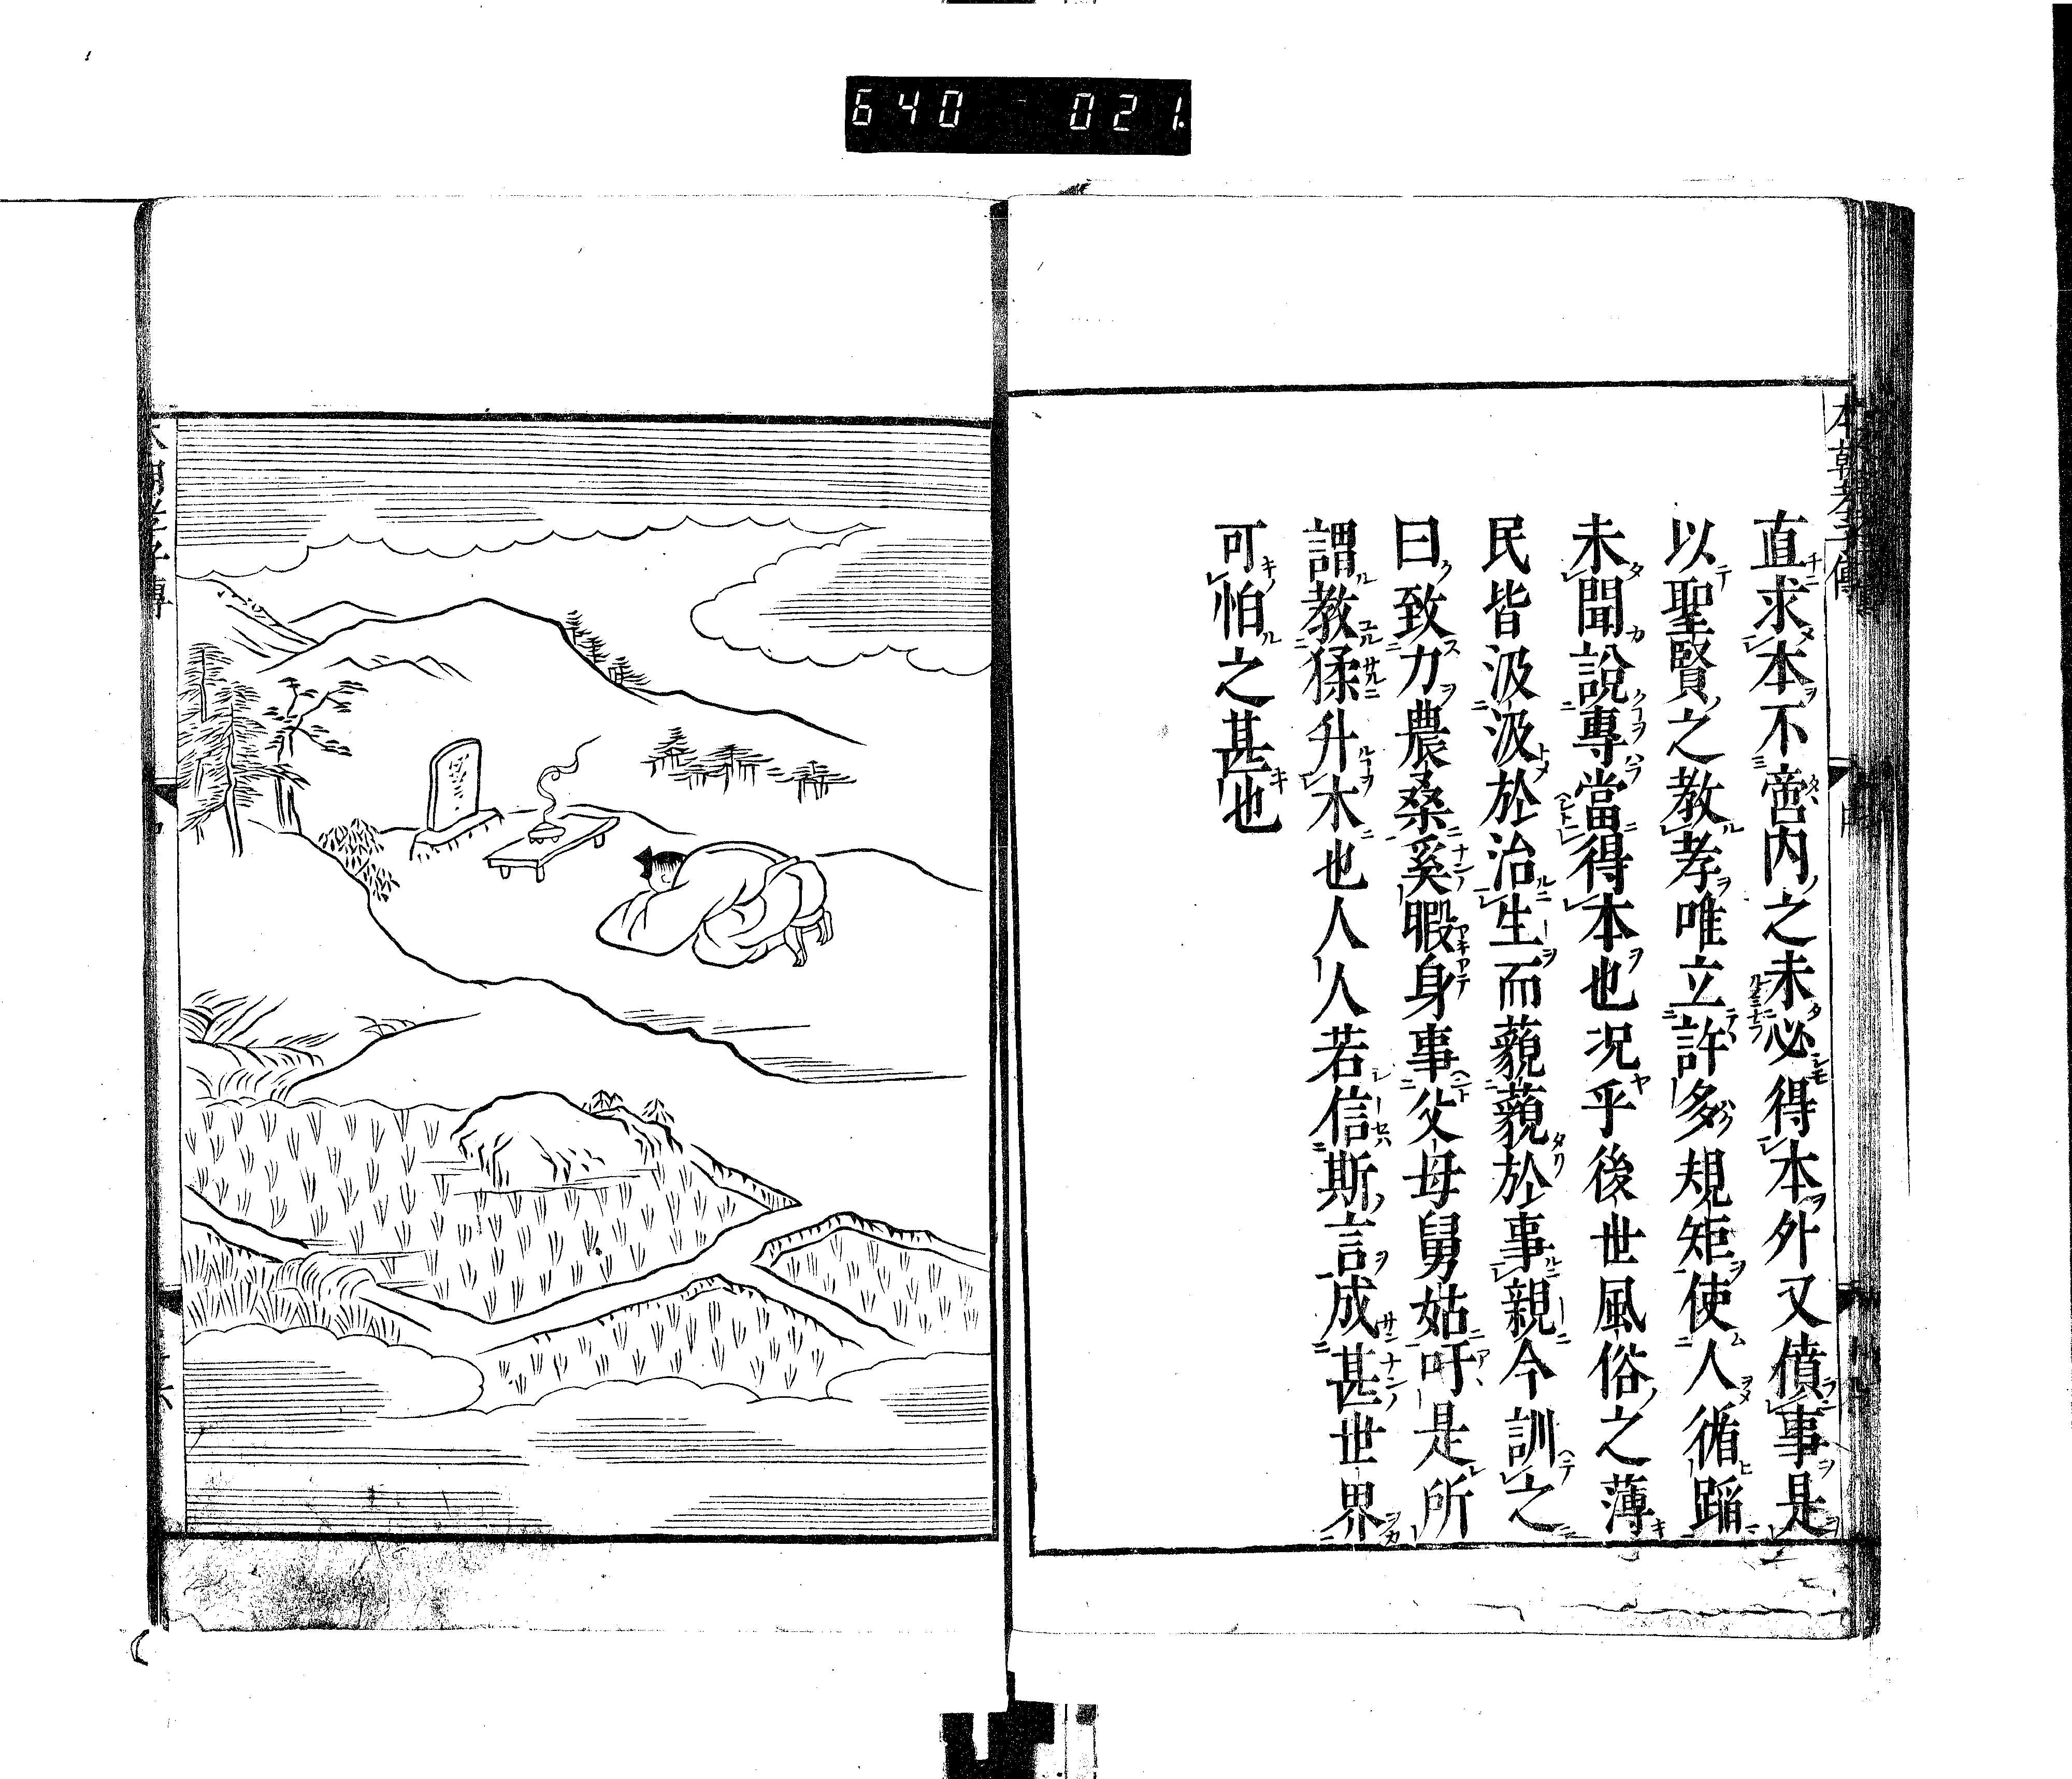 640 021
本朝孝子傳
直求本不啻内之未必得本外又僨事是
以聖賢之教孝唯立許多規矩使人循蹈
未聞說專當得本也況乎後世風俗之薄
民皆汲汲於治生而藐藐於事親今訓之
曰致力農桑奚暇身事父母舅姑吁是所
謂教猱升木也人人若信斯言成甚世界
可怕之甚也
本朝孝子傳